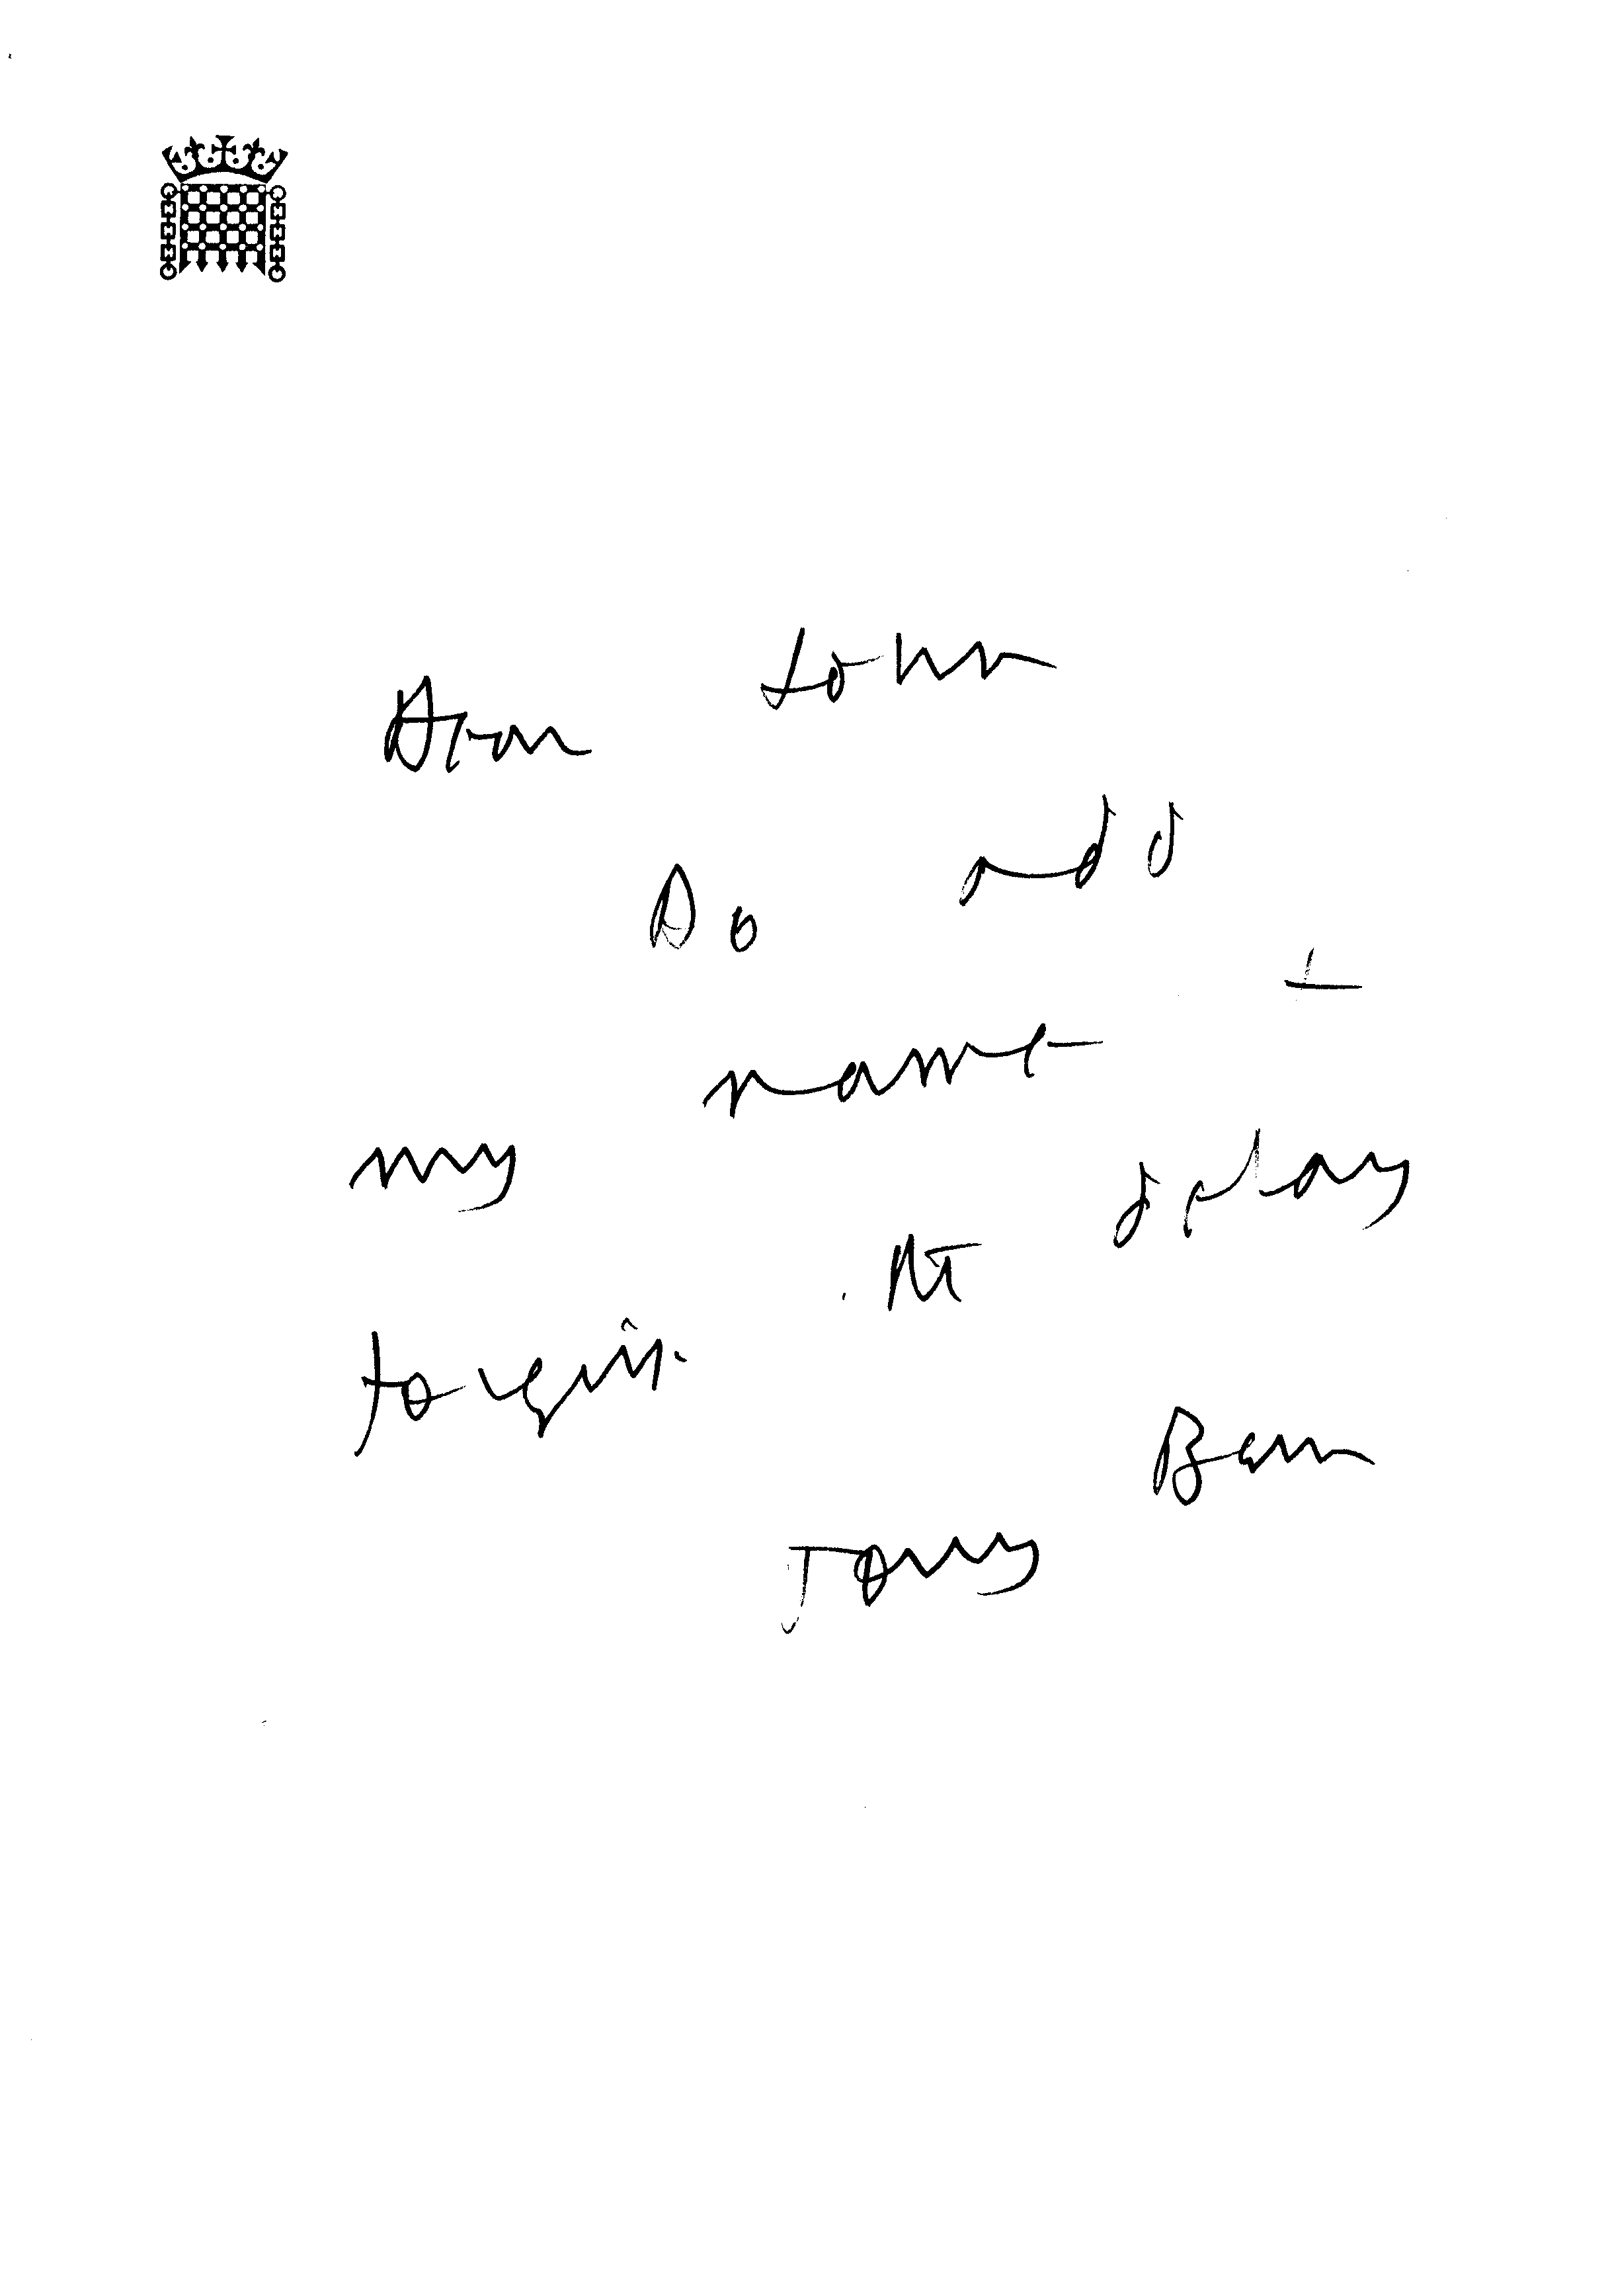 Dear John
Do add
my name +
forgive the delay
Tony Benn